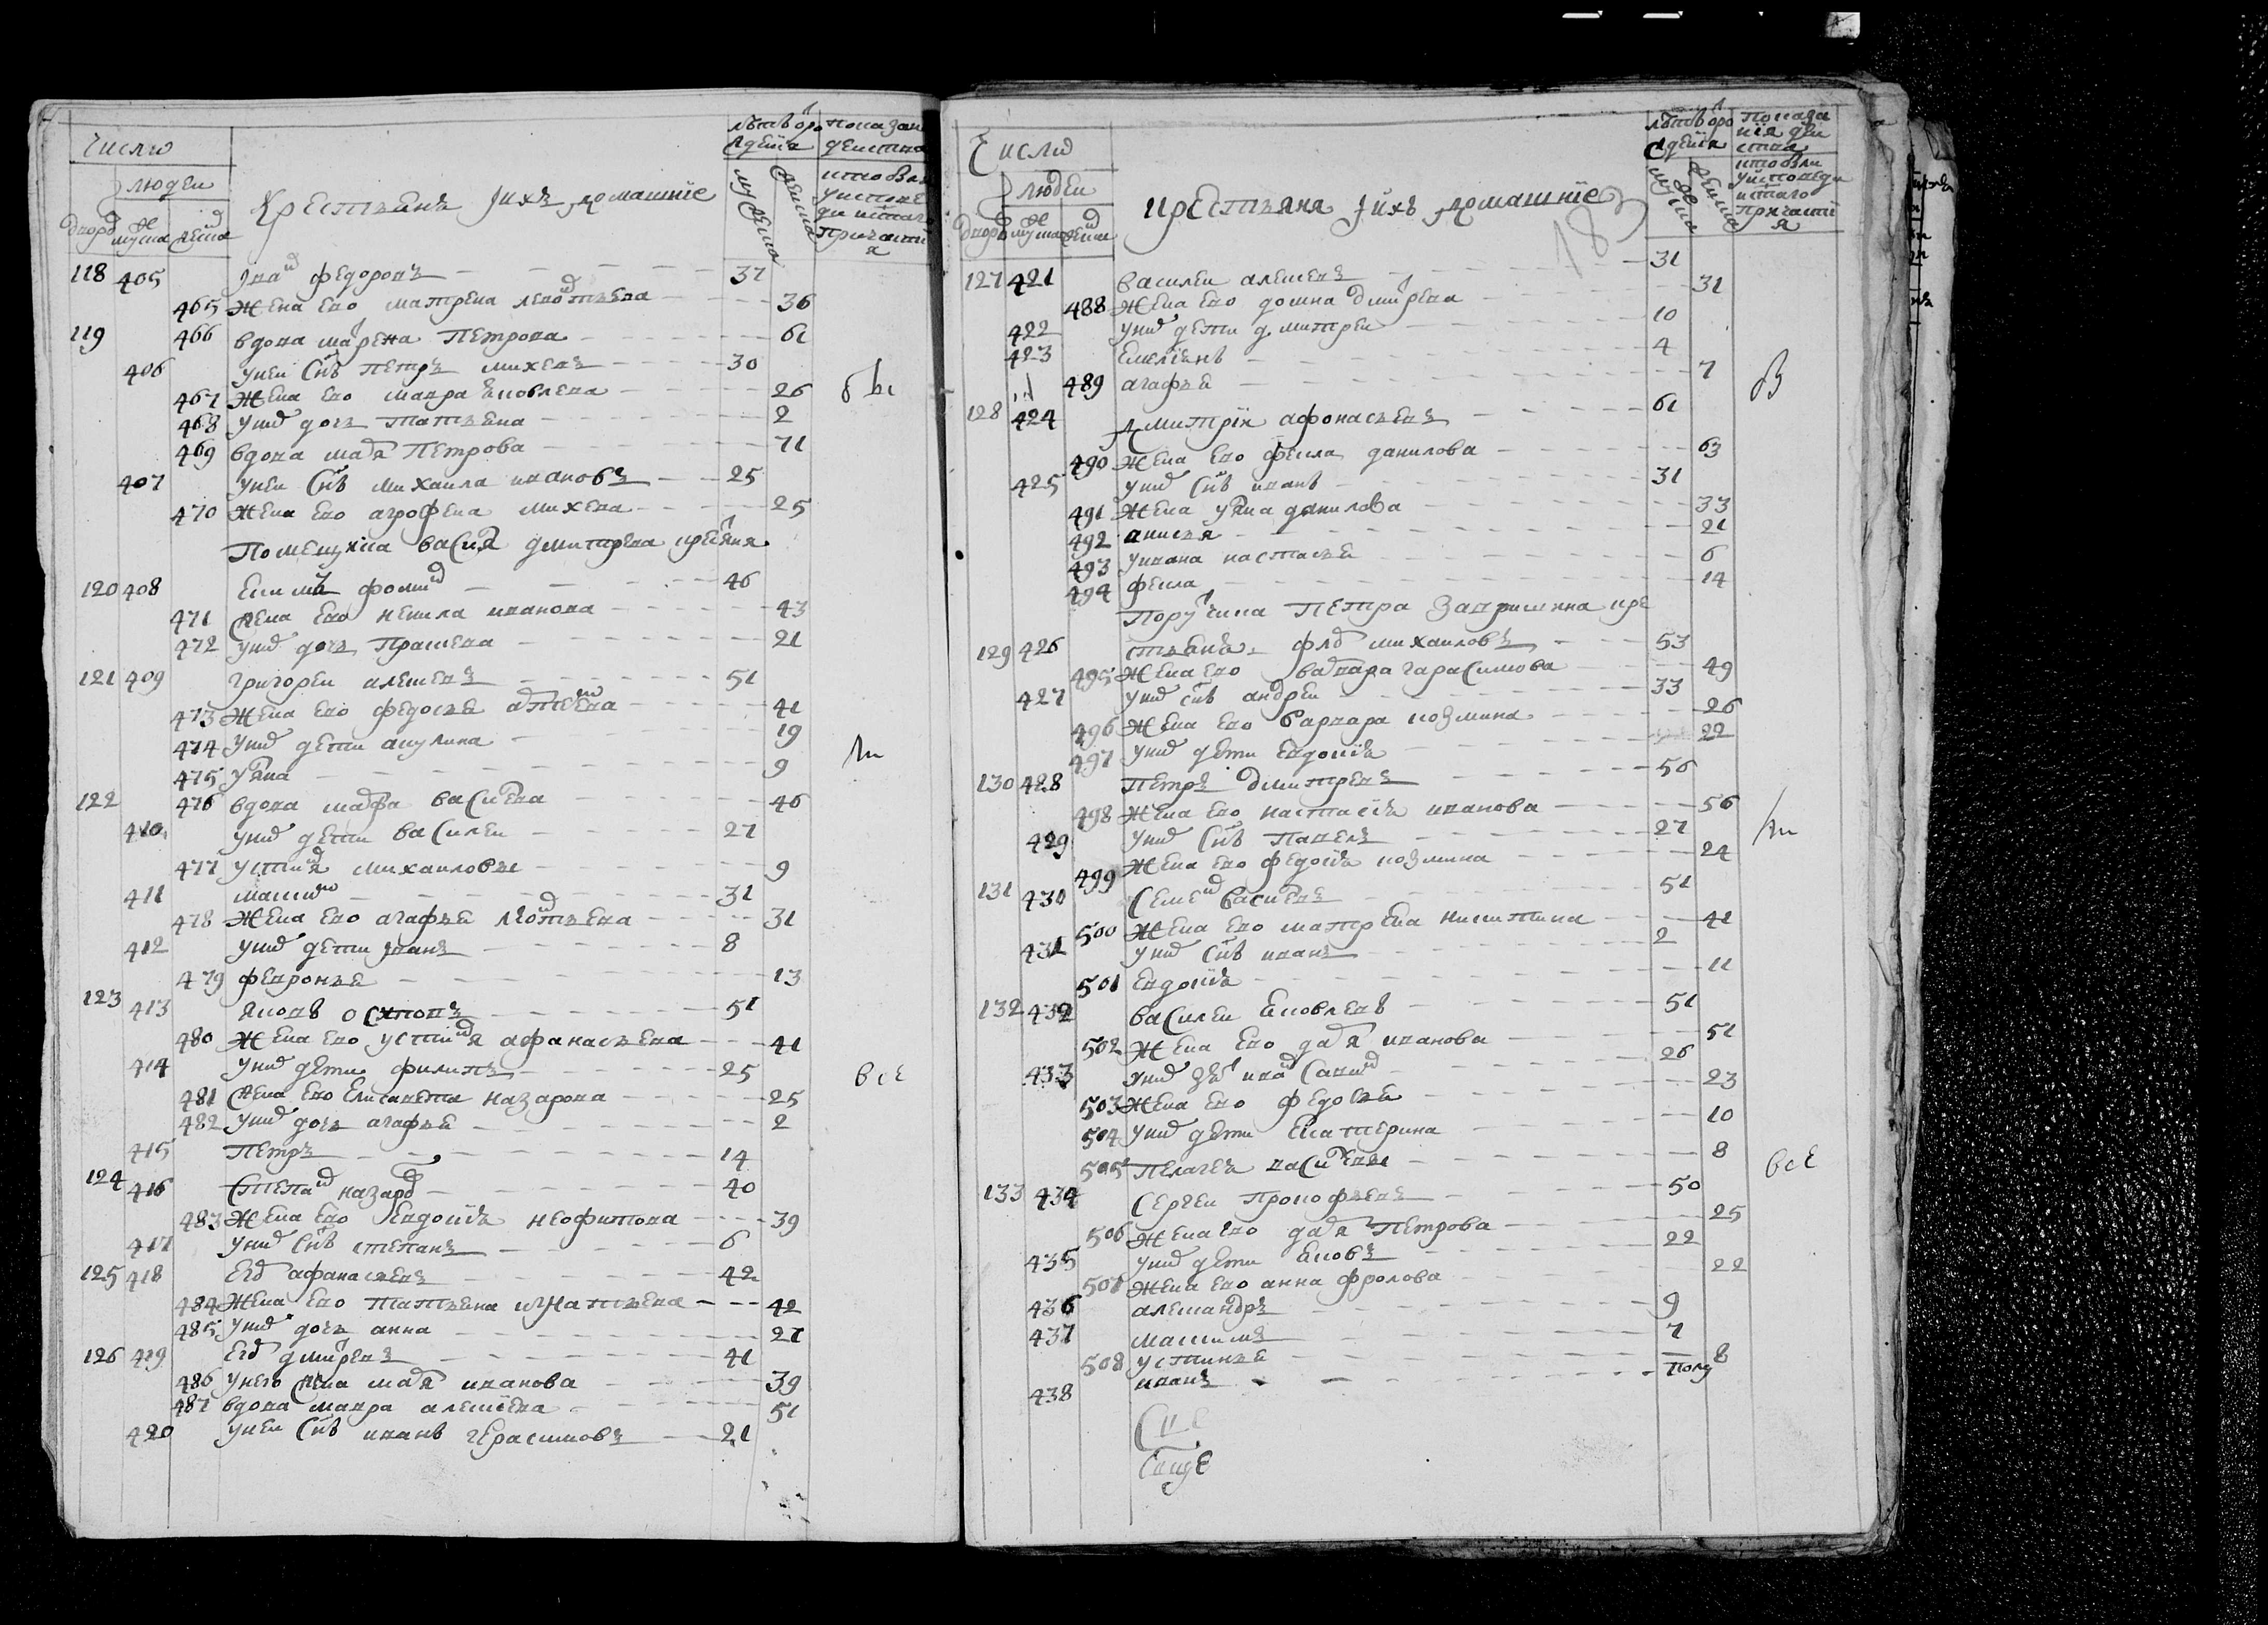 Числѡ
людеи
дворѡ мужеска женска
Крестьянѣ и ихъ домашние
лѣтъ от рождения
мужеска женска
показание действа кто был у исповеди и святаго причастия
118 405 Иванъ федоровъ 37
465 Жена ево матрена леонтьева 36
119 466 вдова марена Петрова 61
406 у неи Снъ петръ михевъ 30
467 Жена ево мавра яковлева 26 бы
468 у нихъ дочь татьяна 2
469 вдова маря Петрова 71
407 у неи Снъ михаила ивановъ 25
470 Жена ево агрофена михева 25
Помещика васия дмитрева кресьяня
120 408 фоминъ 46
471 жена ево ненила иванова 43
472 у нихъ дочь Прасковья 21
121 409 григореи алексевъ 51
473 Жена ево федосья 41
474 у нихъ дети акулина 19 ли
475 уляна 9
122 476 вдова марфа василева 46
410 у нихъ дети василеи 27
477 устиня михаиловы 9
411 максимъ 31
478 Жена ево агафья леонтьева 31
412 у нихъ дети иванъ 8
479 февронья 13
123 413 яковъ осиповъ 51
480 Жена ево устиня афанасьева 41
414 у нихъ дети филипъ 25 все
481 жена ево Елисавета назарова 25
482 у нихъ дочь агафья 2
415 Петръ 14
124 416 Степанъ назаровъ 40
483 Жена ево Евдокия неофитова 39
417 у нихъ Снъ степанъ 6
125 418 Егоръ афанасьевъ 42
484 Жена ево татьяна игнатьева 42
485 у нихъ дочь анна 21
126 419 Егоръ дмитревъ 41
486 у него жена маря иванова 39
487 вдова мавра алексеева 51
420 у неи Снъ иванъ герасимовъ 21
Числѡ
людеи
дворѡ мужеска женска
крестьяня и ихъ домашние
183
лѣтъ от рождения
мужеска женска
показания действа кто были у исповеди и святаго причастия
127 421 василеи алексевъ 31
488 Жена ево домна дмитрева 31
422 у нихъ дети дмитреи 10
423 Емелиянъ 4
489 агафья 7 В
128 424 дмитрии афонасьевъ 61
490 Жена ево фекла данилова 63
425 у нихъ Снъ иванъ 31
491 Жена уляна данилова 33
492 анисья 21
493 у ивана настасья 6
494 фекла 14
Поручика Петра кре
129 426 стьянъ фролъ михаиловъ 53
495 Жена ево варвара гарасимова 49
427 у нихъ снъ андреи 33
496 Жена ево варвара козмина 26
497 у нихъ дети Евдокия 22
130 428 Петръ дмитревъ 56
498 Жена ево настасия иванова 56
429 у нихъ Снъ Павелъ 27 ли
499 Жена ево федосия козмина 24
131 430 Семенъ василевъ 51
500 Жена ево матрена никитина 41
431 у нихъ Снъ иванъ 2
501 Евдокия 11
132 432 василеи яковлевъ 51
502 Жена ево даря иванова 51
433 у нихъ 26
503 Жена ево федосья 23
504 у нихъ дети Екатерина 10
505 Пелагея василевы 8 все
133 434 Сергеи Прокофьевъ 50
506 Жена ево даря Петрова 25
435 у нихъ дети яковъ 22
507 Жена ево анна фролова 22
436 александръ 9
437 максимъ 7
508 устинья 8
438 иванъ полу